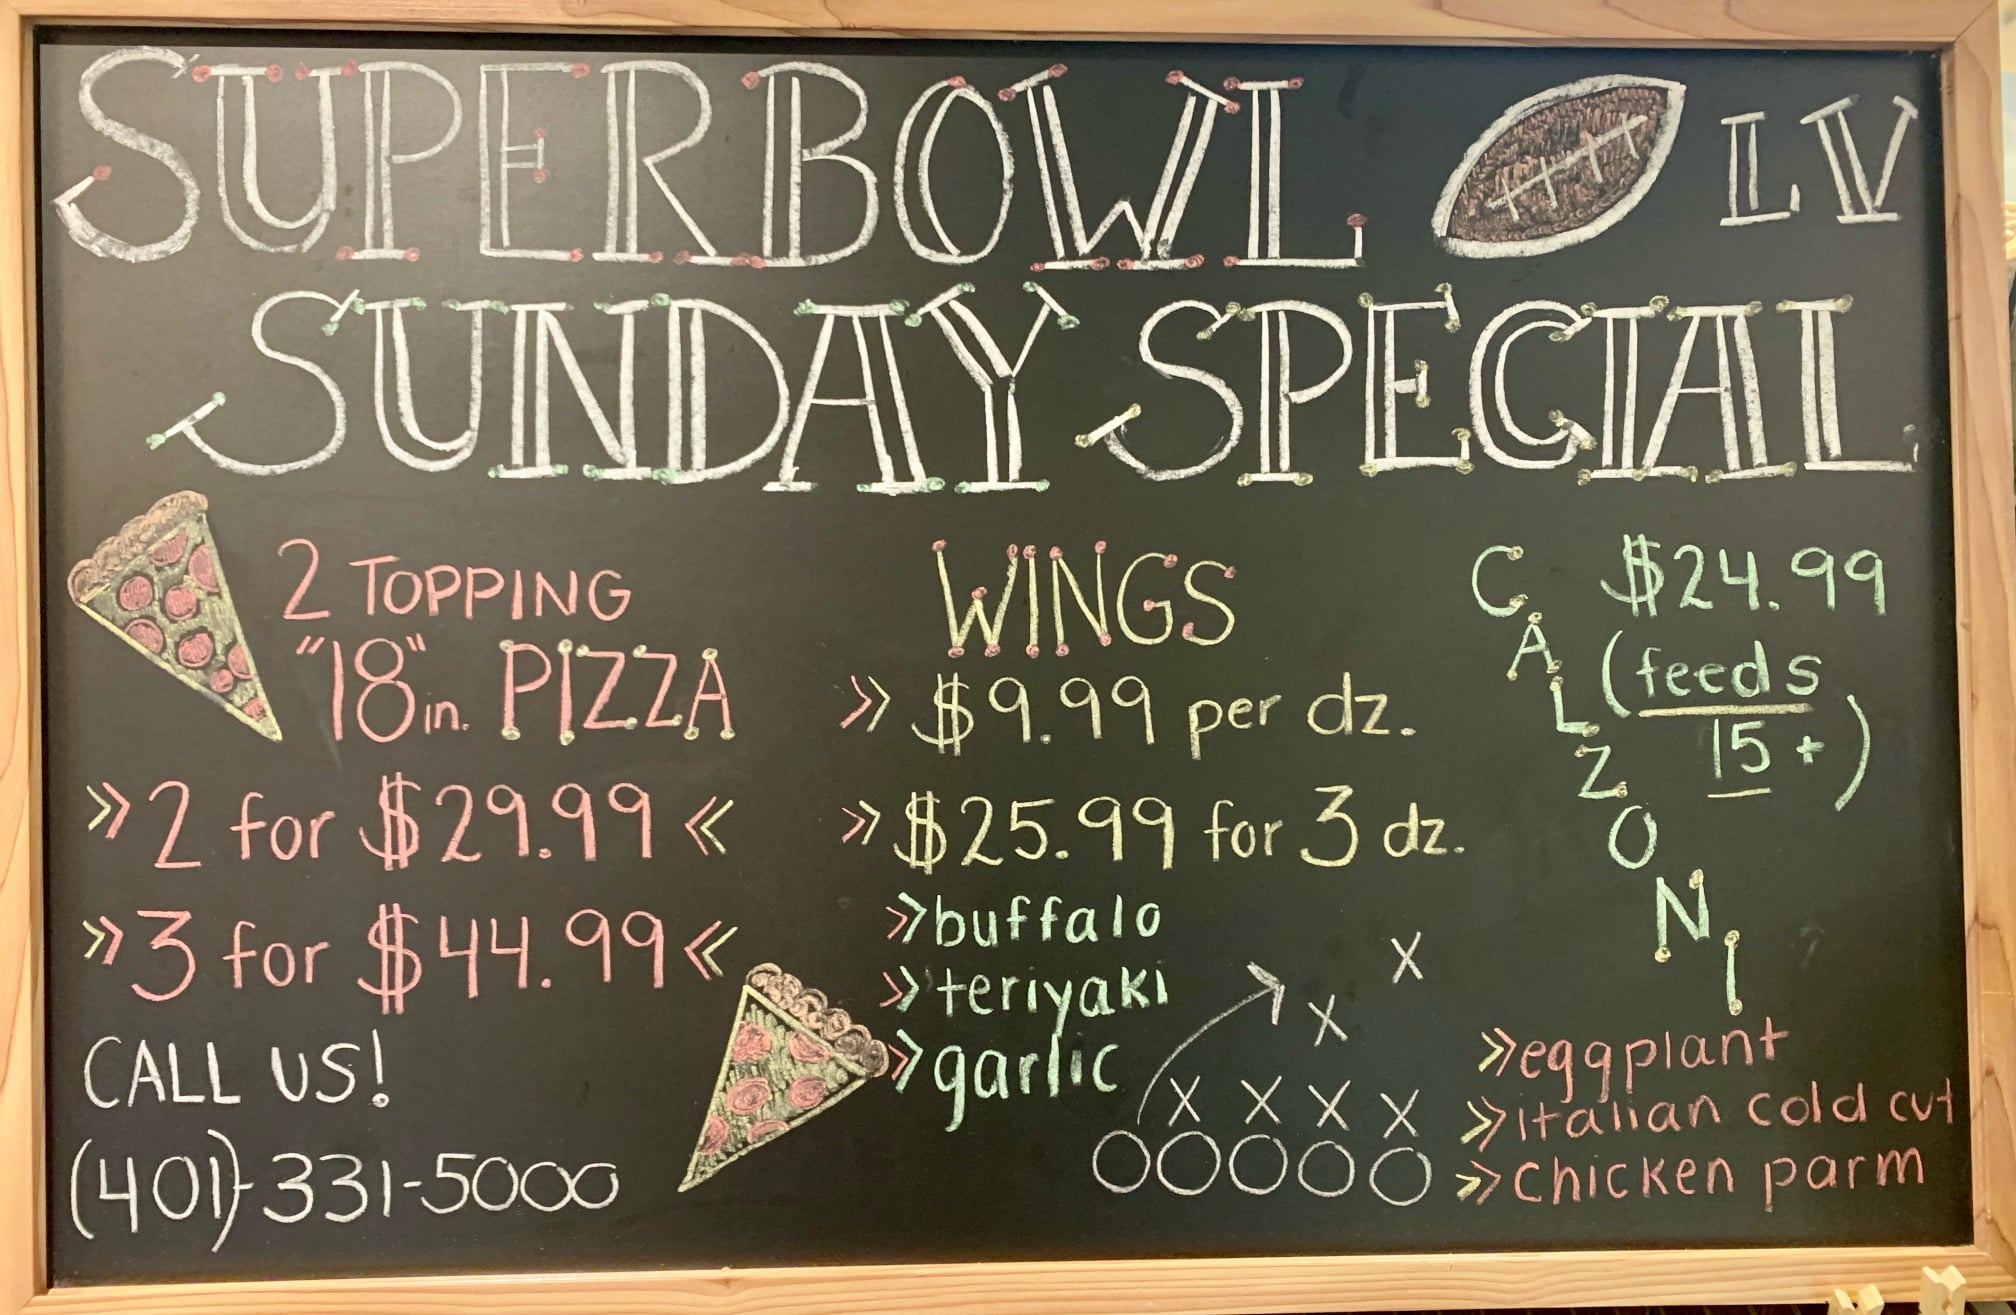 SUPERBOWL LV
SUNDAY SPECIAL
2 TOPPING
"18" in. PIZZA
» 2 for $29.99 «
» 3 for $44.99 «
CALL US!
(401)-331-5000
WINGS
» $9.99 per dz.
» $25.99 for 3 dz.
» buffalo
» teriyaki
» garlic
X
X
X X X X
O O O O O
CALZONI
$24.99
(feeds
15+)
» eggplant
» italian cold cut
» chicken parm